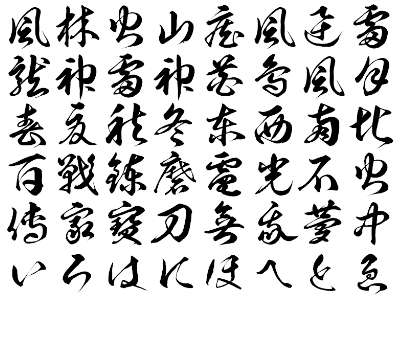 風林火山疾風迅雷
龍神雷神花鳥風月
春夏秋冬東西南北
百戦錬磨電光石火
傳家寶刀無我夢中
いろはにほへとゑ